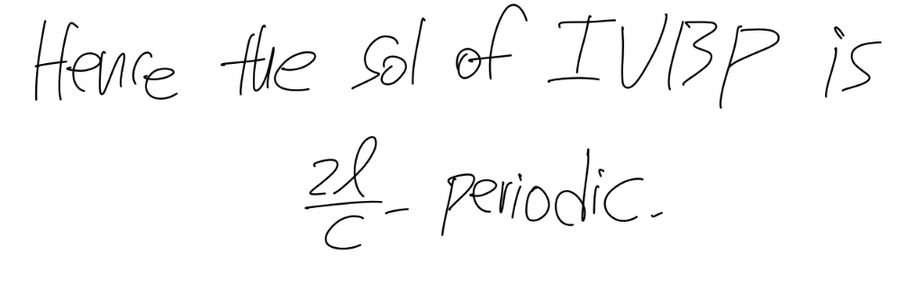 Hence the sol of IVBP is
2l/c - periodic.